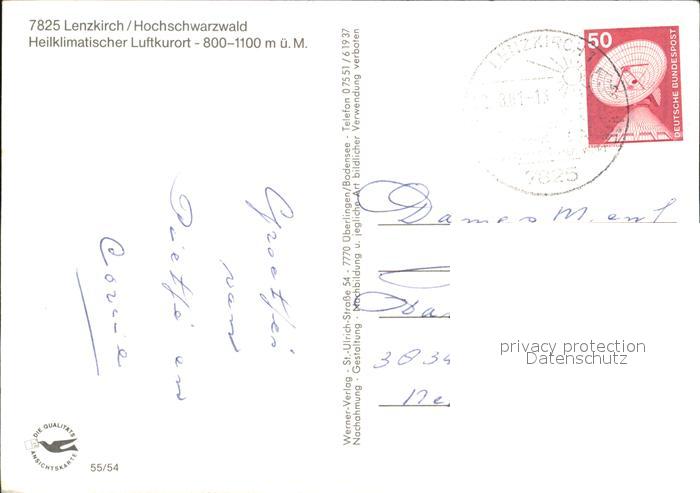 7825 Lenzkirch / Hochschwarzwald
Heilklimatischer Luftkurort - 800–1100 m ü. M.
LENZKIRCH
7825
50
DEUTSCHE BUNDESPOST
Werner-Verlag - St.-Ulrich-Straße 54 - 7770 Überlingen/Bodensee - Telefon 07551/61937
Nachahmung - Gestaltung - Nachbildung u. jegliche Art bildlicher Verwendung verboten
Groetjes
van
Corrie
Dames M. en
3834
privacy protection
Datenschutz
DIE QUALITÄTS
ANSICHTSKARTE
55/54